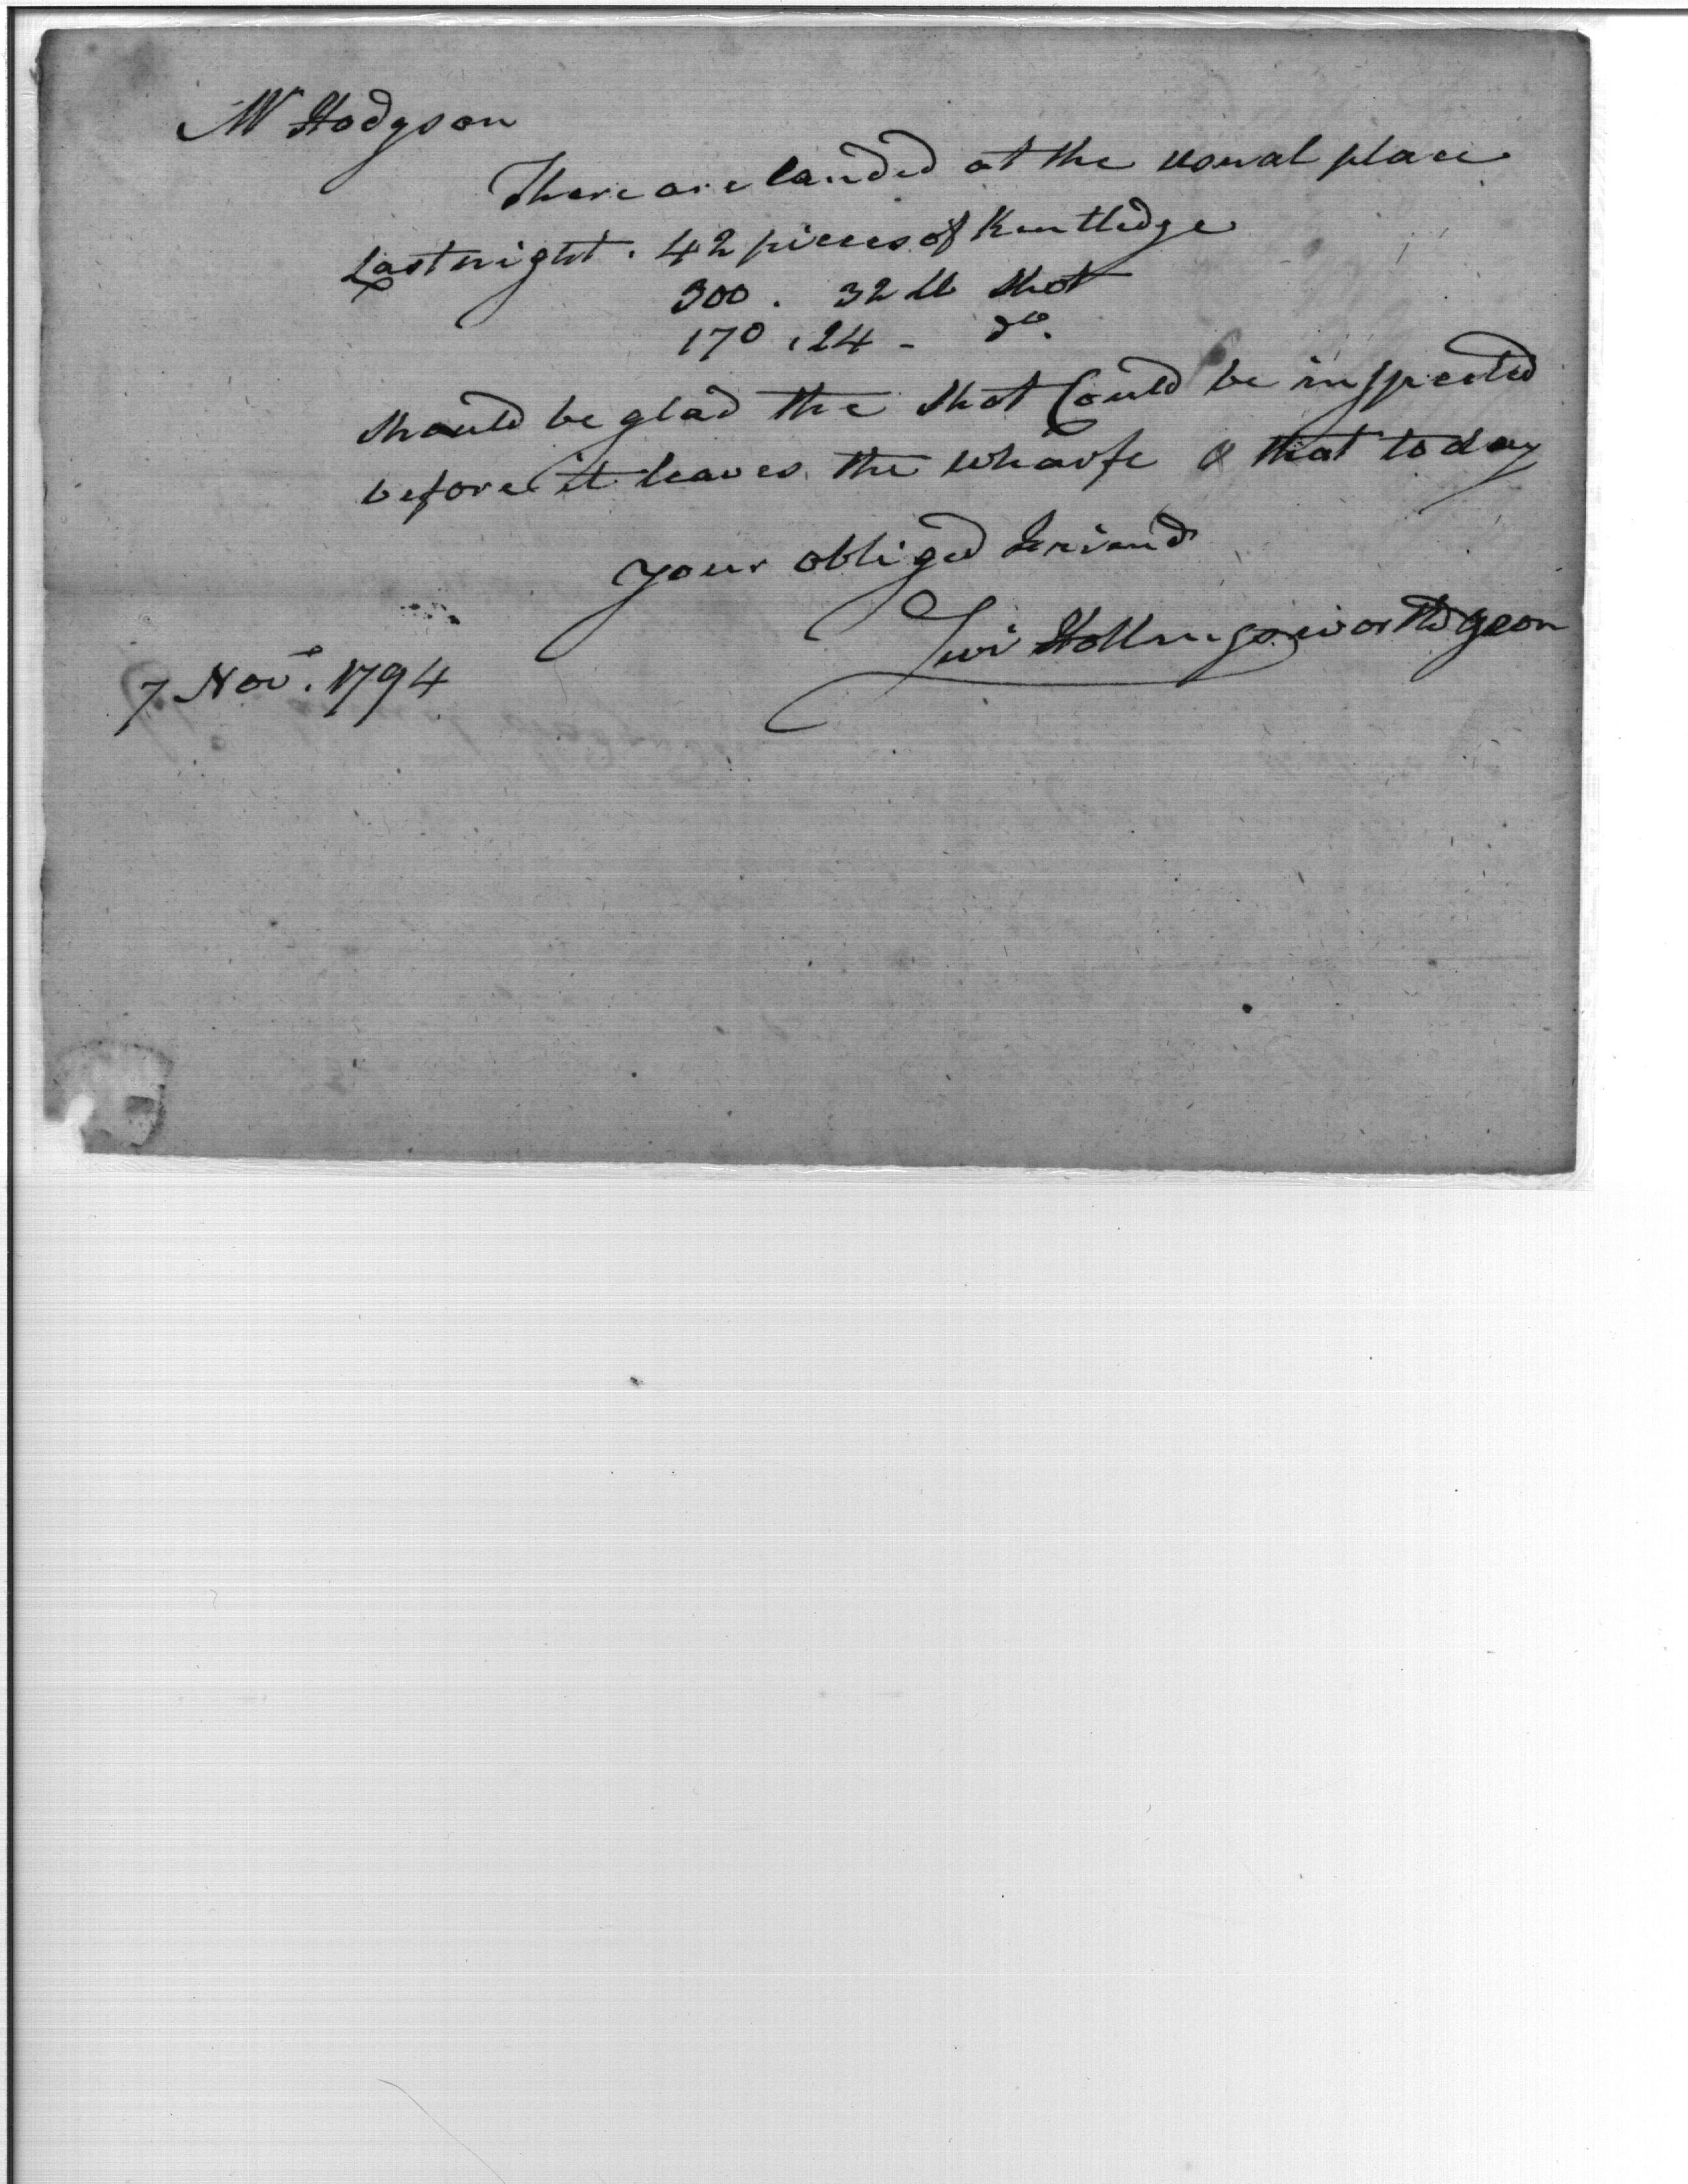 Mr Hodgson
There are landed at the usual place
Last night . 42 pieces of Kentledge
300 . 32 lb shot
170 . 24 - do.
should be glad the shot Could be inspected
before it leaves the wharfe & that to day
your obliged Friend
Levi Hollingsworth & son
7 Nov. 1794